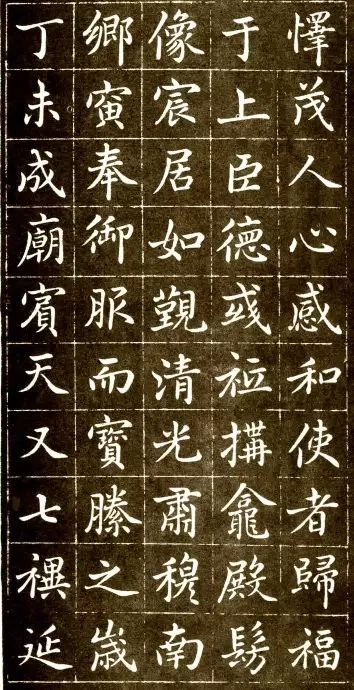 懌茂人心感和使者歸福
于上臣德彧祗搆龕殿髣
像宸居如覲清光肅穆南
鄉寅奉御服而寶縢之歳
丁未成廟賔天又七禩延